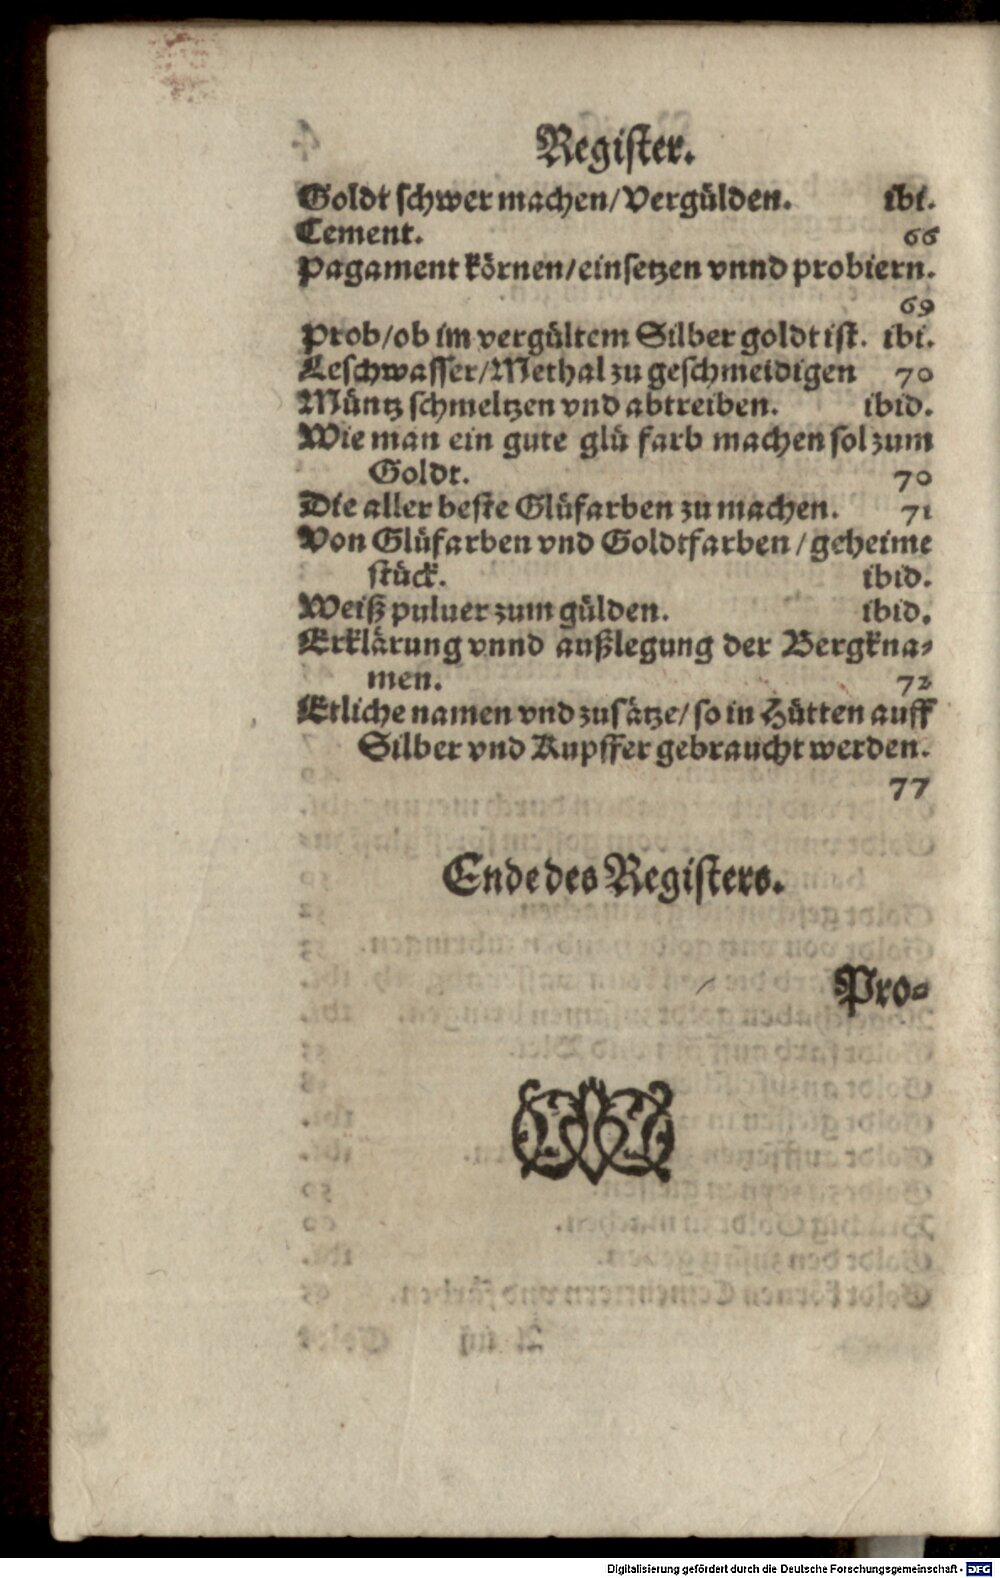 Register.
Goldt schwer machen/Vergülden. ibi.
Cement. 66
Pagament körnen/einsetzen vnnd probiern.
69
Prob/ob im vergültem Silber goldt ist. ibi.
Leschwasser/Methal zu geschmeidigen 70
Müntz schmeltzen vnd abtreiben. ibid.
Wie man ein gute glü farb machen sol zum
Goldt. 70
Die aller beste Glüfarben zu machen. 71
Von Glüfarben vnd Goldtfarben/geheime
stück. ibid.
Weiß puluer zum gülden. ibid.
Erklärung vnnd außlegung der Bergkna-
men. 72
Etliche namen vnd zusätze/so in Hütten auff
Silber vnd Kupffer gebraucht werden.
77
Ende des Registers.
Pro-
Digitalisierung gefördert durch die Deutsche Forschungsgemeinschaft - DFG